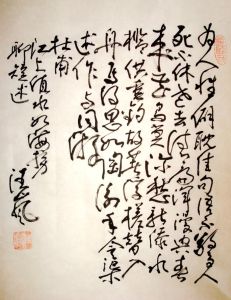 为人性僻耽佳句语不惊人
死不休老去诗篇浑漫与春
来花鸟莫深愁新添水
槛供垂钓故著浮槎替入
舟焉得思如陶谢手令渠
述作与同游
杜甫
江上值水如海势
聊短述